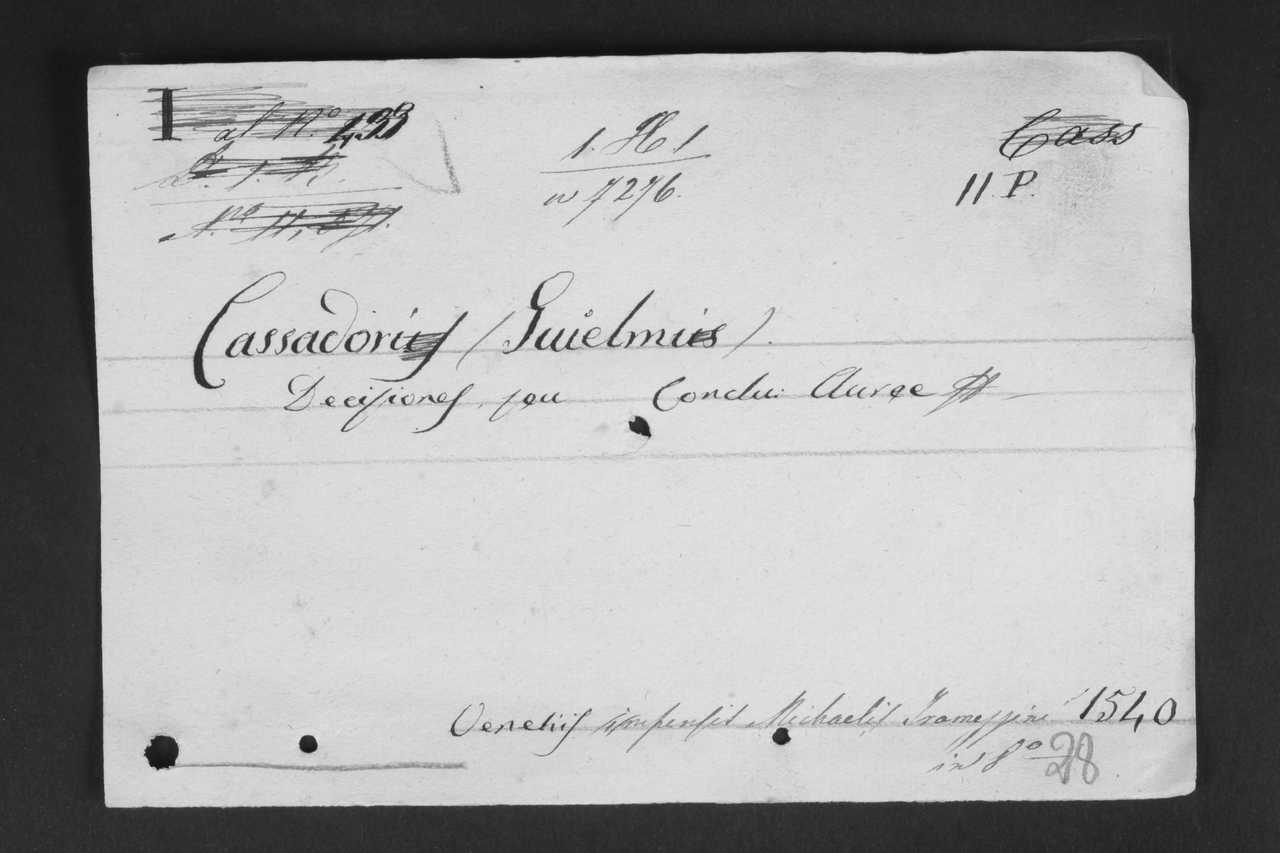 I al N.º 433
1. H. 1
w 7276.
Cass
11. P.
Cassadorius (Guielmus).
Decisiones, seu Conclu: Auree
Venetiis impensis Michaelis Tramezzini 1540
in 8º 28